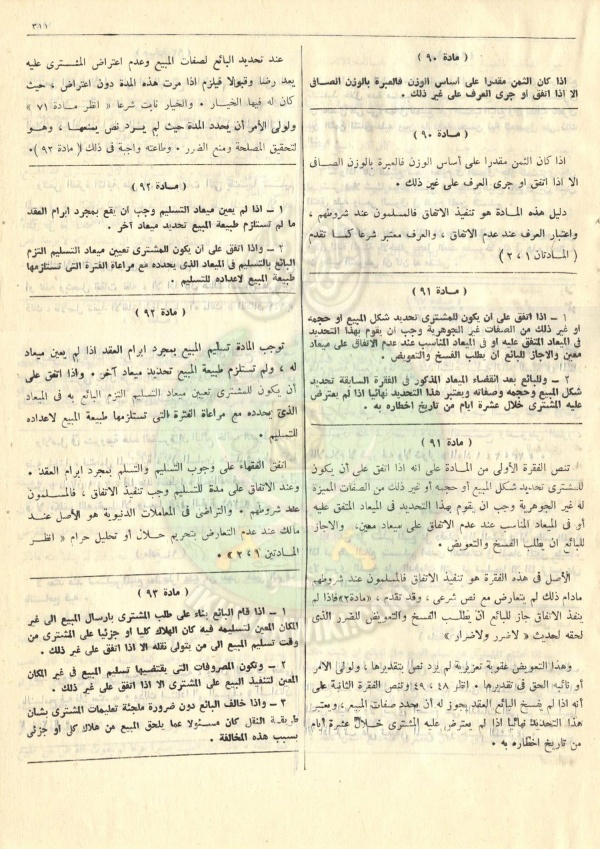 ٣١١
( مادة ٩٠ )
اذا كان الثمن مقدرا على أساس الوزن فالعبرة بالوزن الصافى
الا اذا اتفق او جرى العرف على غير ذلك .
( مـادة ٩٠ )
اذا كان الثمن مقدرا على أساس الوزن فالعبرة بالوزن الصـافى
الا اذا اتفق او جرى العرف على غير ذلك .
دليل هذه المـادة هو تنفيذ الاتفاق فالمسلمون عند شروطهم ،
واعتبار العرف عند عدم الاتفاق ، والعرف معتبر شرعا كمـا تقدم
( المـادتان ١ ، ٢ )
( مـادة ٩١ )
١ ـ اذا اتفق على ان يكون للمشترى تحديد شكل المبيع او حجمه
او غير ذلك من الصفات غير الجوهرية وجب ان يقوم بهذا التحديد
فى الميعاد المتفق عليه او فى الميعاد المناسب عند عدم الاتفاق على ميعاد
معين والاجاز للبائع ان يطلب الفسخ والتعويض .
٢ ـ وللبائع بعد انقضاء الميعاد المذكور فى الفقرة السابقة تحديد
شكل المبيع وحجمه وصفاته ويعتبر هذا التحديد نهائيا اذا لم يعترض
عليه المشترى خلال عشرة ايام من تاريخ اخطاره به .
( مـادة ٩١ )
تنص الفقرة الأولى من المـادة على انه اذا اتفق على أن يكون
للمشترى تحديد شكل المبيع أو حجمه أو غير ذلك من الصفات المميزة
له غير الجوهرية وجب ان يقوم بهذا التحديد فى الميعاد المتفق عليه
أو فى الميعاد المناسب عند عدم الاتفاق على ميعاد معين، والاجاز
للبائع ان يطلب الفسخ والتعويض .
الأصل فى هذه الفقرة هو تنفيذ الاتفاق فالمسلمون عند شروطهم
مادام ذلك لم يتعارض مع نص شرعى ، وقد تقدم ، «مادة٢» فاذا لم
ينفذ الاتفاق جاز للبائع أن يطلب الفسخ والتعويض للضرر الذى
لحقه لحديث « لاضرر ولاضرار »
وهذا التعويض عقوبة تعزيرية لم يرد نص بتقديرها ، ولولى الأمر
أو نائبه الحق فى تقديرها . انظر ٤٨ ، ٤٩ وتنص الفقرة الثانية على
أنه اذا لم يفسخ البائع العقد يجوز له ان يحدد صفات المبيع ، ويعتبر
هذا التحديد نهائيا اذا لم يعترض عليه المشترى خـلال عشرة أيام
من تاريخ اخطاره به .
عند تحديد البائع لصفات المبيع وعدم اعتراض المشترى عليه
يعد رضا وقبولا فيلزم اذا مرت هذه المدة دون اعتراض ، حيث
كان له فيها الخيار . والخيار ثابت شرعا « انظر مادة ٧١ »
ولولى الأمر أن يحدد المدة حيث لم يرد نص يمنعهـا ، وهـو
لتحقيق المصلحة ومنع الضرر . وطاعته واجبة فى ذلك ( مادة ٩٢ ) .
( مـادة ٩٢ )
١ ـ اذا لم يعين ميعاد التسليم وجب ان يقع بمجرد ابرام العقد
ما لم تستلزم طبيعة المبيع تحديد ميعاد آخر .
٢ ـ واذا اتفق على ان يكون للمشترى تعيين ميعاد التسليم التزم
البائع بالتسليم فى الميعاد الذى يحدده مع مراعاة الفترة التى تستلزمها
طبيعة المبيع لاعداده للتسليم .
( مـادة ٩٢ )
توجب المادة تسليم المبيع بمجرد ابرام العقد اذا لم يعين ميعاد
له ، ولم تستلزم طبيعة المبيع تحديد ميعاد آخر . واذا اتفق على
أن يكون للمشترى تعيين ميعاد التسليم التزم البائع به فى الميعاد
الذى يحدده مع مراعاة الفترة التى تستلزمها طبيعة المبيع لاعداده
للتسليم .
اتفق الفقهاء على وجوب التسليم والتسلم بمجرد ابرام العقد .
وعند الاتفاق على مدة للتسليم وجب تنفيذ الاتفاق ، فالمسلمـون
عند شروطهم . والتراضى فى المعاملات الدنيوية هو الأصل عنـد
مالك عند عدم التعارض بتحريم حلال أو تحليل حرام « انظـر
المـادتين ١ ، ٢ » .
( مـادة ٩٣ )
١ ـ اذا قام البائع بناء على طلب المشترى بارسال المبيع الى غير
المكان المعين لتسليمه فيه كان الهلاك كليا أو جزئيا على المشترى من
وقت تسليم المبيع الى من يتولى نقله الا اذا اتفق على غير ذلك .
٢ ـ وتكون المصروفات التى يقتضيها تسليم المبيع فى غير المكان
المعين لتنفيذ البيع على المشترى الا اذا اتفق على غير ذلك .
٣ ـ واذا خالف البائع دون ضرورة ملجئة تعليمات المشترى بشأن
طريقة النقل كان مسئولا عما يلحق المبيع من هلاك كلى أو جزئى
بسبب هذه المخالفة .